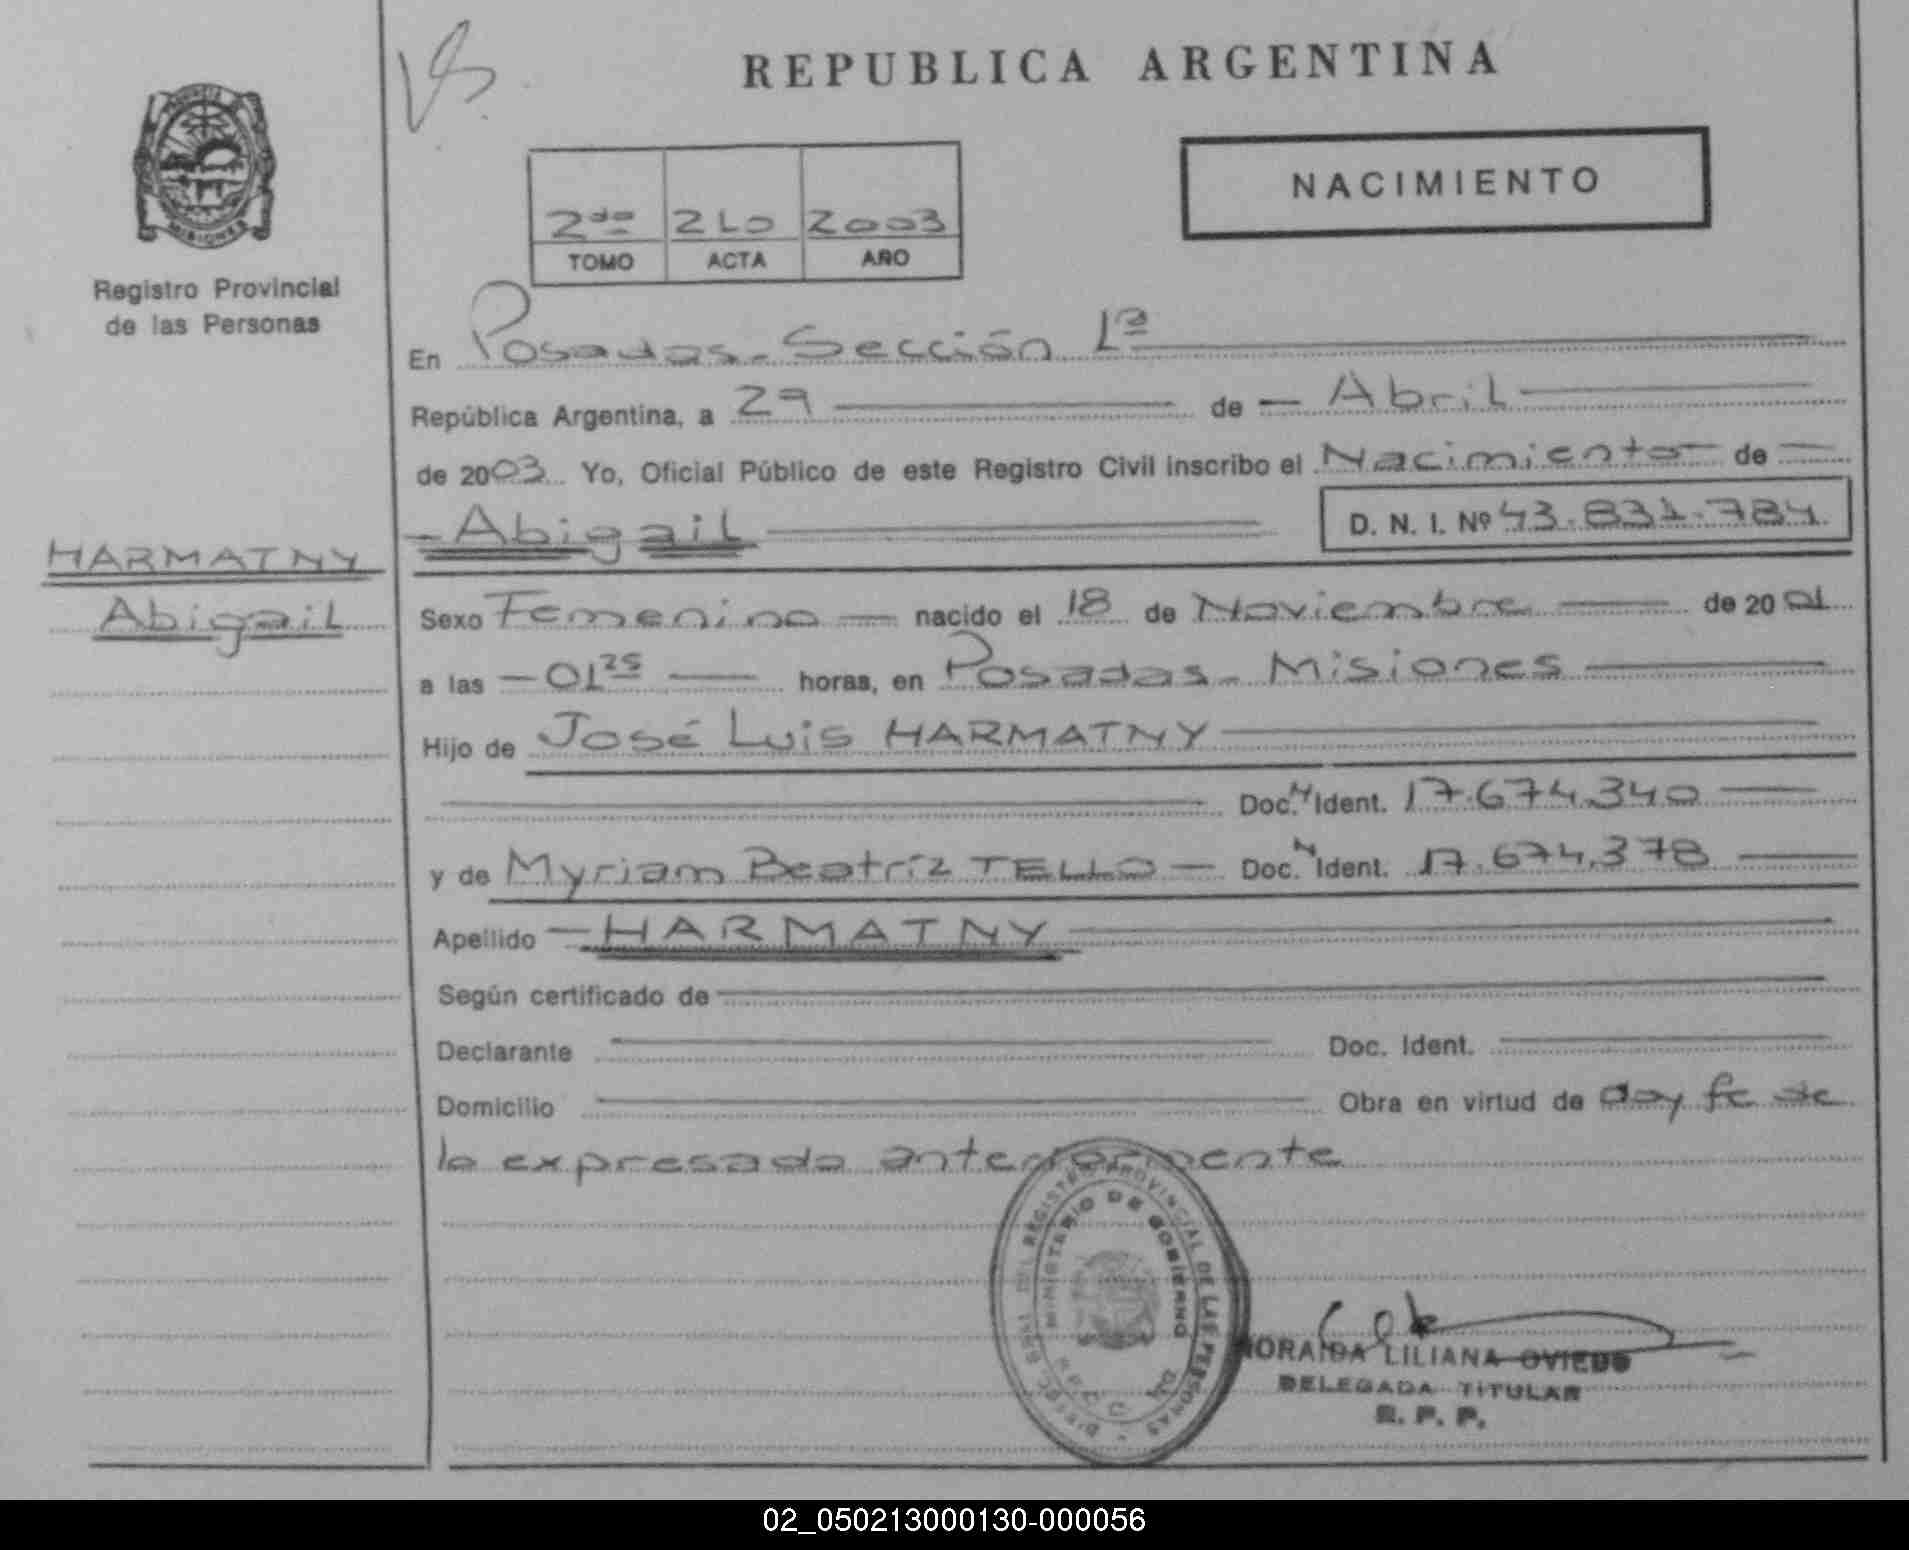 REPUBLICA ARGENTINA
NACIMIENTO
2do 210 2003
TOMO ACTA AÑO
PROVINCIA DE
MISIONES
Registro Provincial
de las Personas
En Posadas - Sección 1ª
República Argentina, a 29 de Abril
de 2003 Yo, Oficial Público de este Registro Civil inscribo el Nacimiento de
Abigail D. N. I. Nº 43.831.784
HARMATNY
Abigail
Sexo Femenino nacido el 18 de Noviembre de 2001
a las 01 25 horas, en Posadas - Misiones
Hijo de José Luis HARMATNY
Doc. N Ident. 17.674.340
y de Myriam Beatríz TELLO Doc. N Ident. 17.674.378
Apellido HARMATNY
Según certificado de
Declarante Doc. Ident.
Domicilio Obra en virtud de doy fe de
lo expresado anteriormente
REGISTRO PROVINCIAL DE LAS PERSONAS
MINISTERIO DE GOBIERNO
LILIANA OVIEDO
DELEGADA TITULAR
R. P. P.
02_050213000130-000056